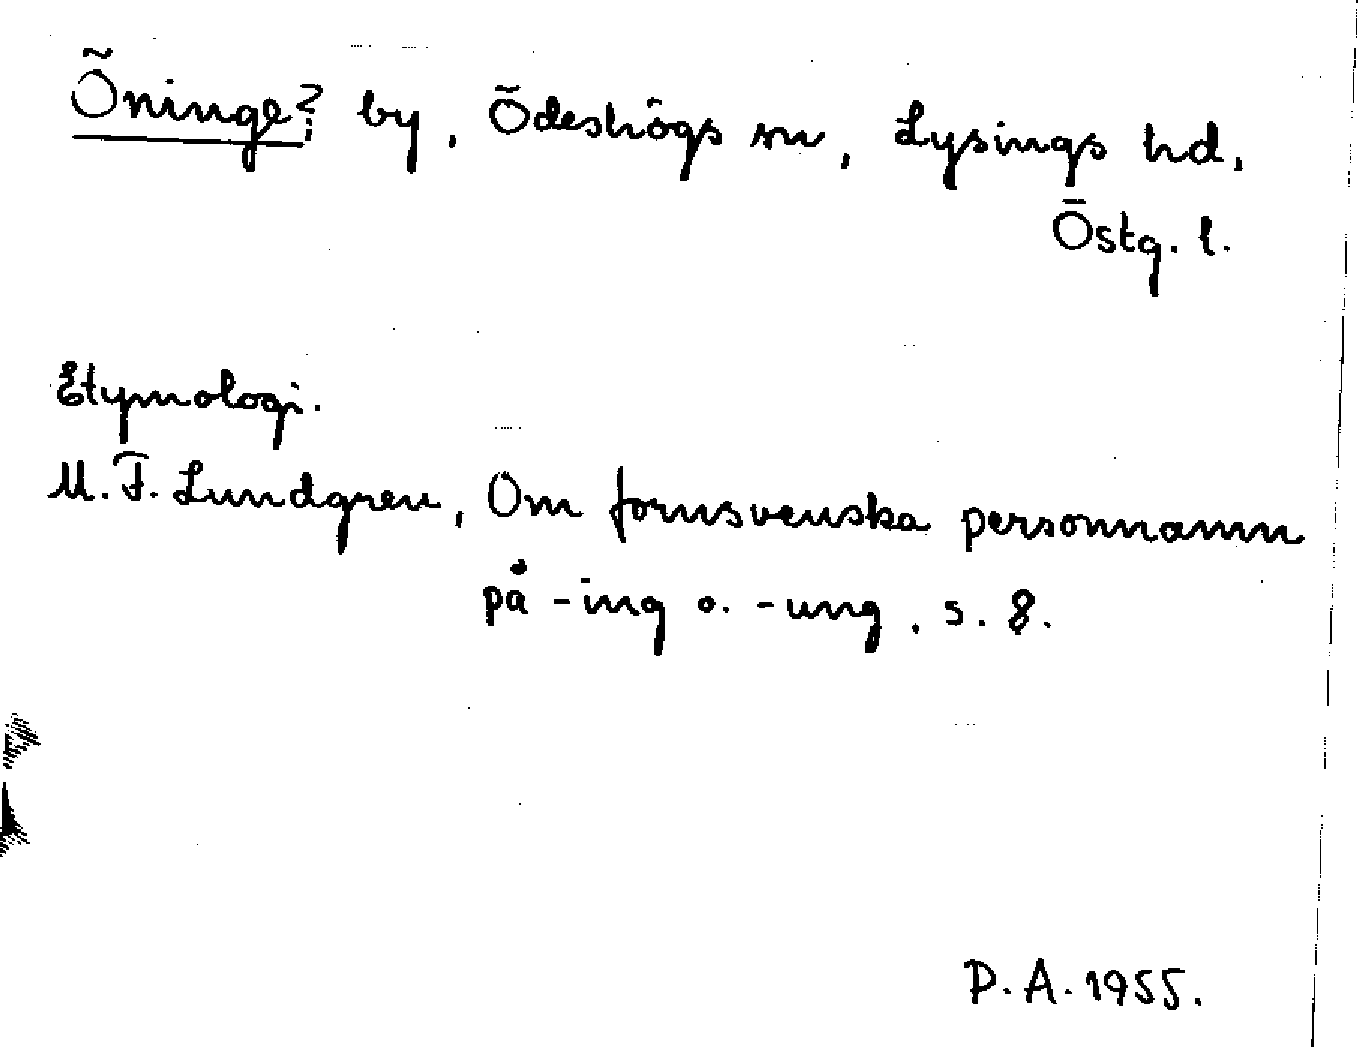 Öninge? by, Ödeshögs sn, Lysings hd,
Östg. l.
Etymologi.
M. F. Lundgren, Om fornsvenska personnamn
på -ing o. -ung, s. 8.
P. A. 1955.